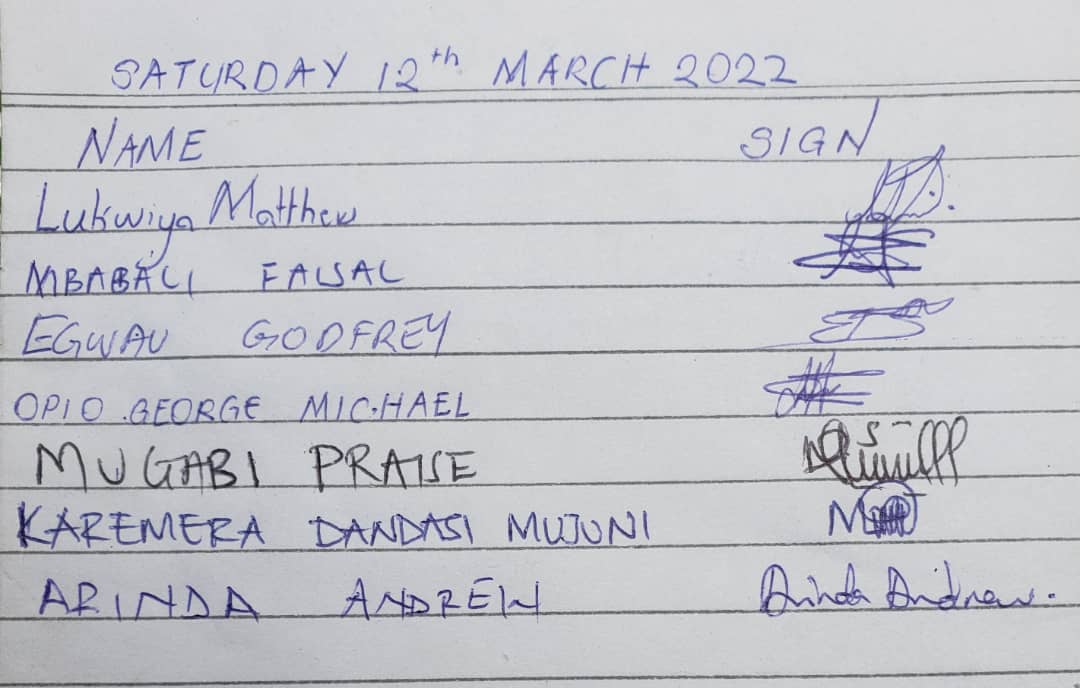 SATURDAY 12th MARCH 2022
NAME SIGN
Lukwiya Matthew
MBABALI FAISAL
EGWAU GODFREY
OPIO GEORGE MICHAEL
MUGABI PRAISE
KAREMERA DANDASI MUJUNI
ARINDA ANDREW Arinda Andrew.